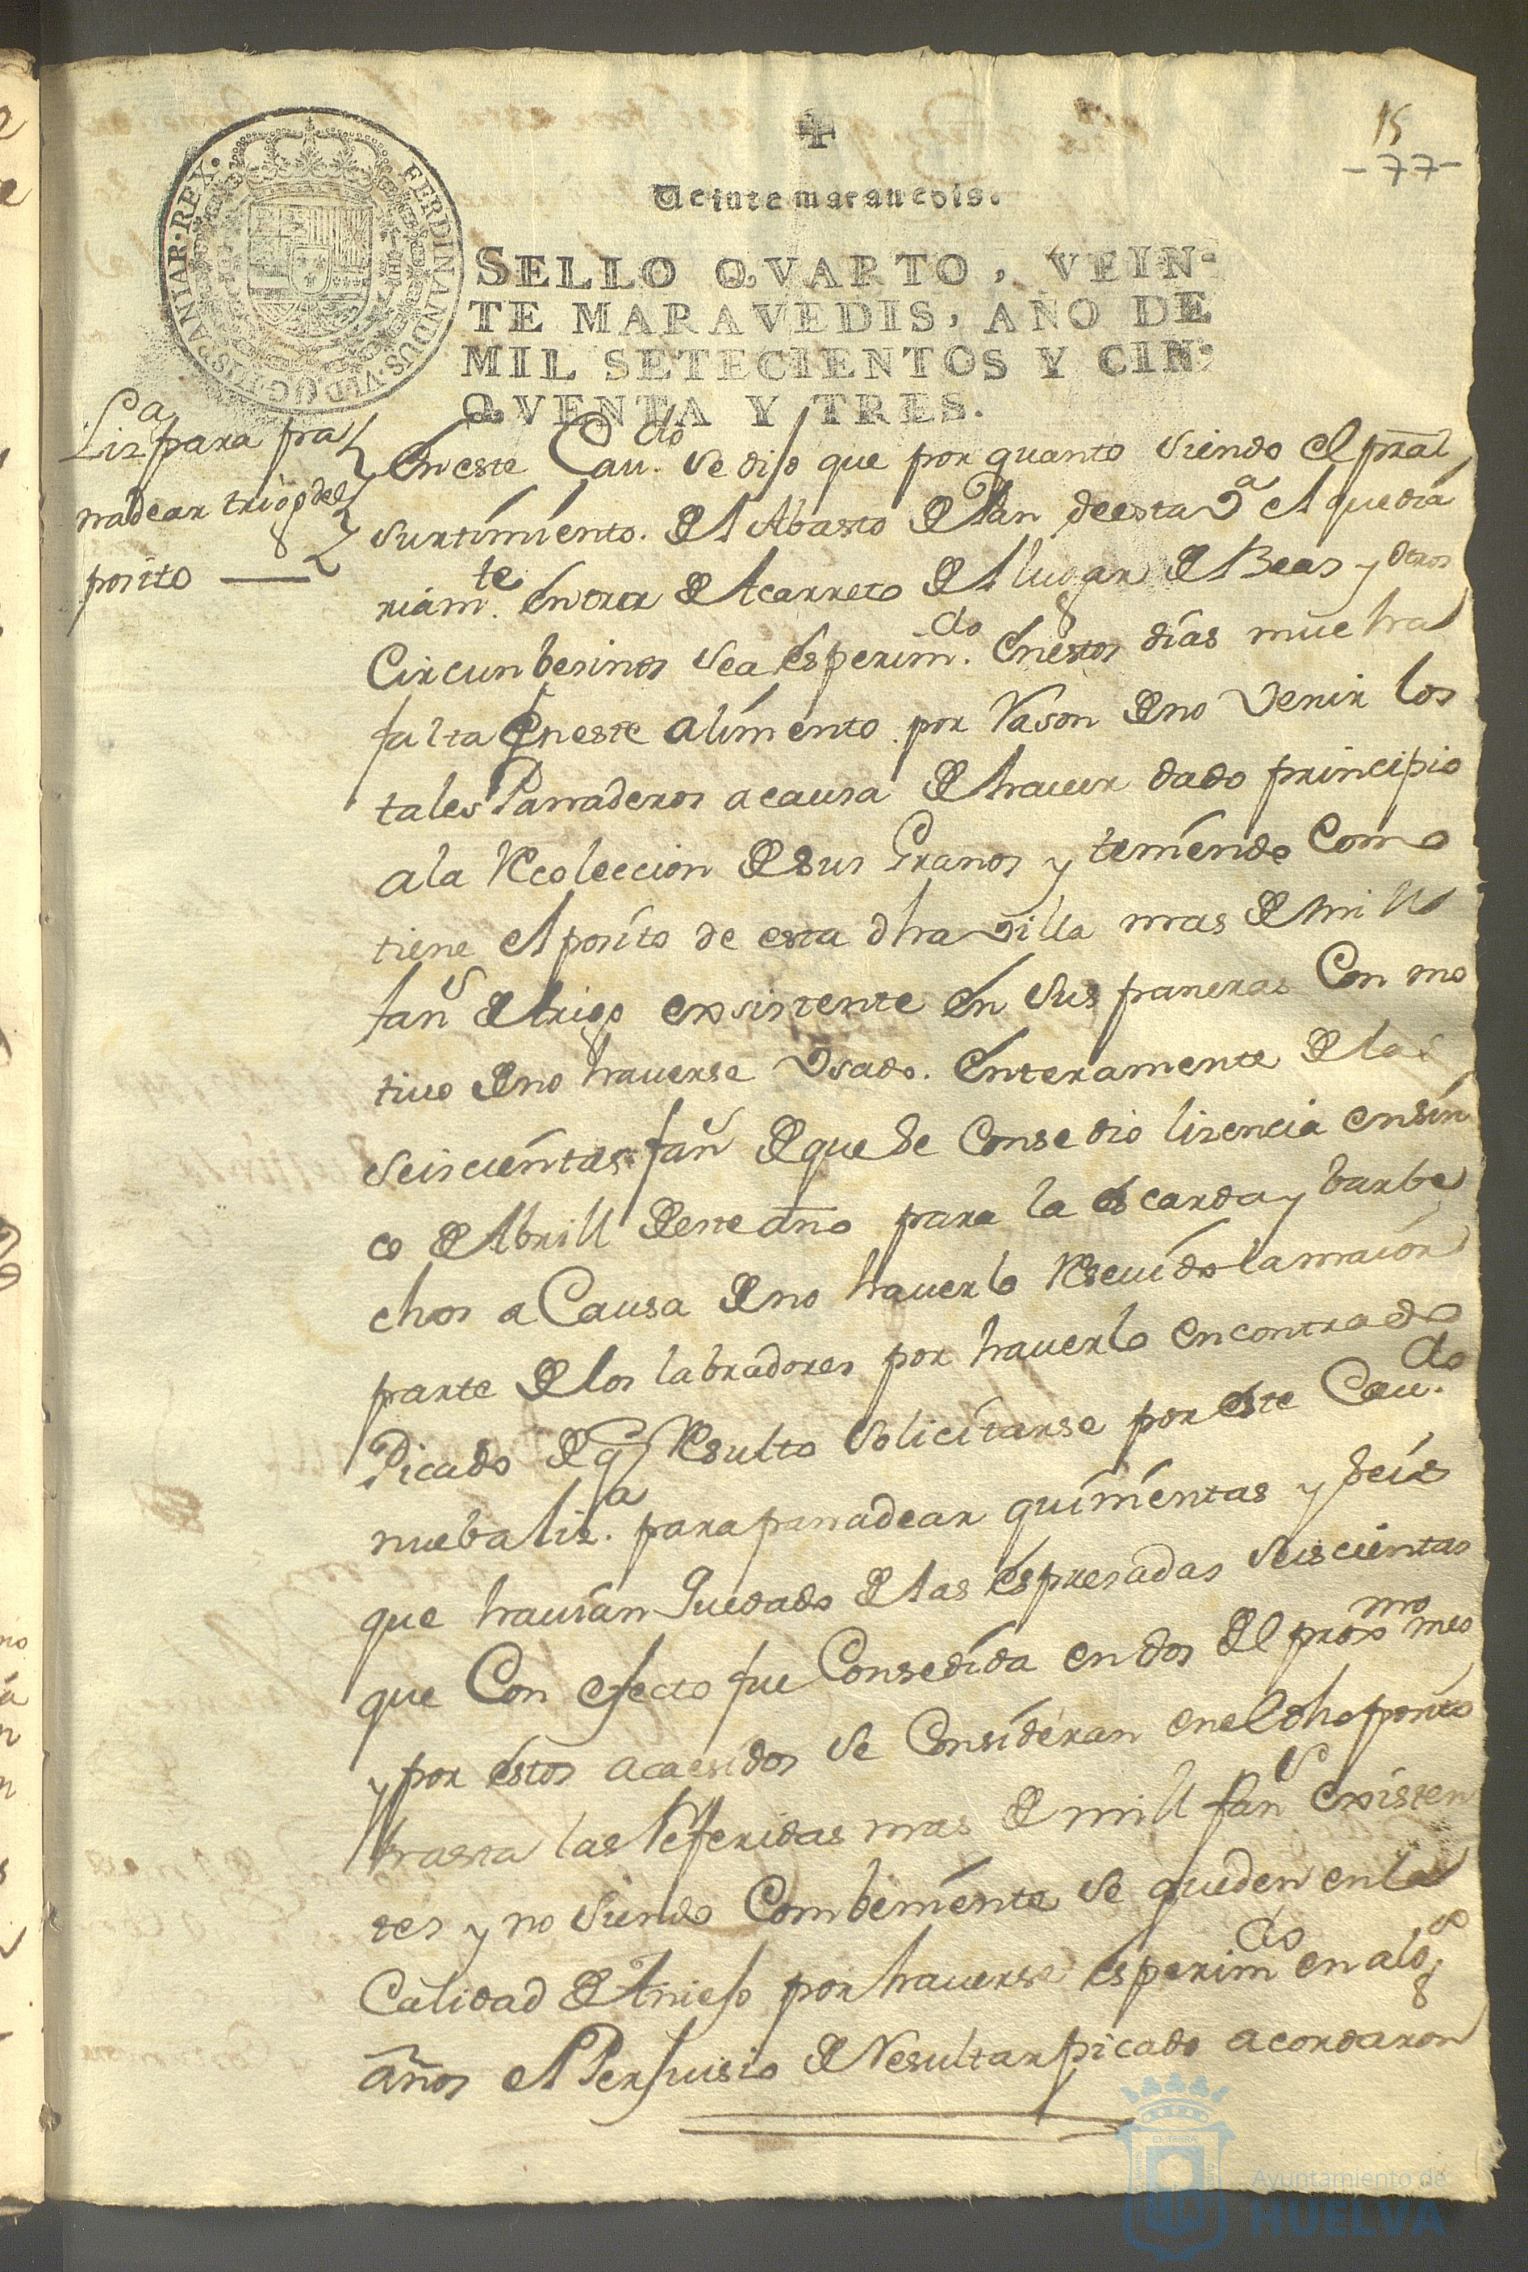 15
-77-
Veinte maravedis.
SELLO QVARTO, VEIN-
TE MARAVEDIS, AÑO DE
MIL SETECIENTOS Y CIN-
QVENTA Y TRES.
FERDINANDUS.VI.D.G.HISPANIAR.REX.
Lizª para pa
nadear trigo del
posito
En este Cau.do se dijo que por quanto siendo el pral
surtimiento. del Abasto del Pan de esta Vª el que dia
riam.te entra del acarreto del lugar de Beas y otros
Circunbesinos sea esperim.do en estos dias mucha
falta en este alimento por Rason de no venir los
tales Panaderos a causa de hauer dado principio
a la Recoleccion de sus Granos y teniendo como
tiene el posito de esta dha villa mas de mill
fans de trigo exsistente en sus paneras Con mo
tiuo de no hauerse Vsado. enteramente de las
seiscientas fans de que se Consedio lizencia en sin
co de Abrill de este año para la escarda y barbe
chos a Causa de no hauerlo Reseuido la maior
parte de los labradores por hauerlo encontrado
Picado de q Resulto solicitarse por este Cau.do
nueba liz.ª para panadear quinientas y seis
que hauian Quedado de las espresadas seiscientas
que Con efecto fue Consedida en dos del proxmo mes
y por estos acaesidos se Consideran en el dho posito
hasta las Referidas mas de mill fans existen
tes y no siendo Combeniente se queden en la
Calidad de Aniejo por hauerse esperimdo en algs
años el Perjuisio de Resultar picado acordaron
Ayuntamiento de
HUELVA